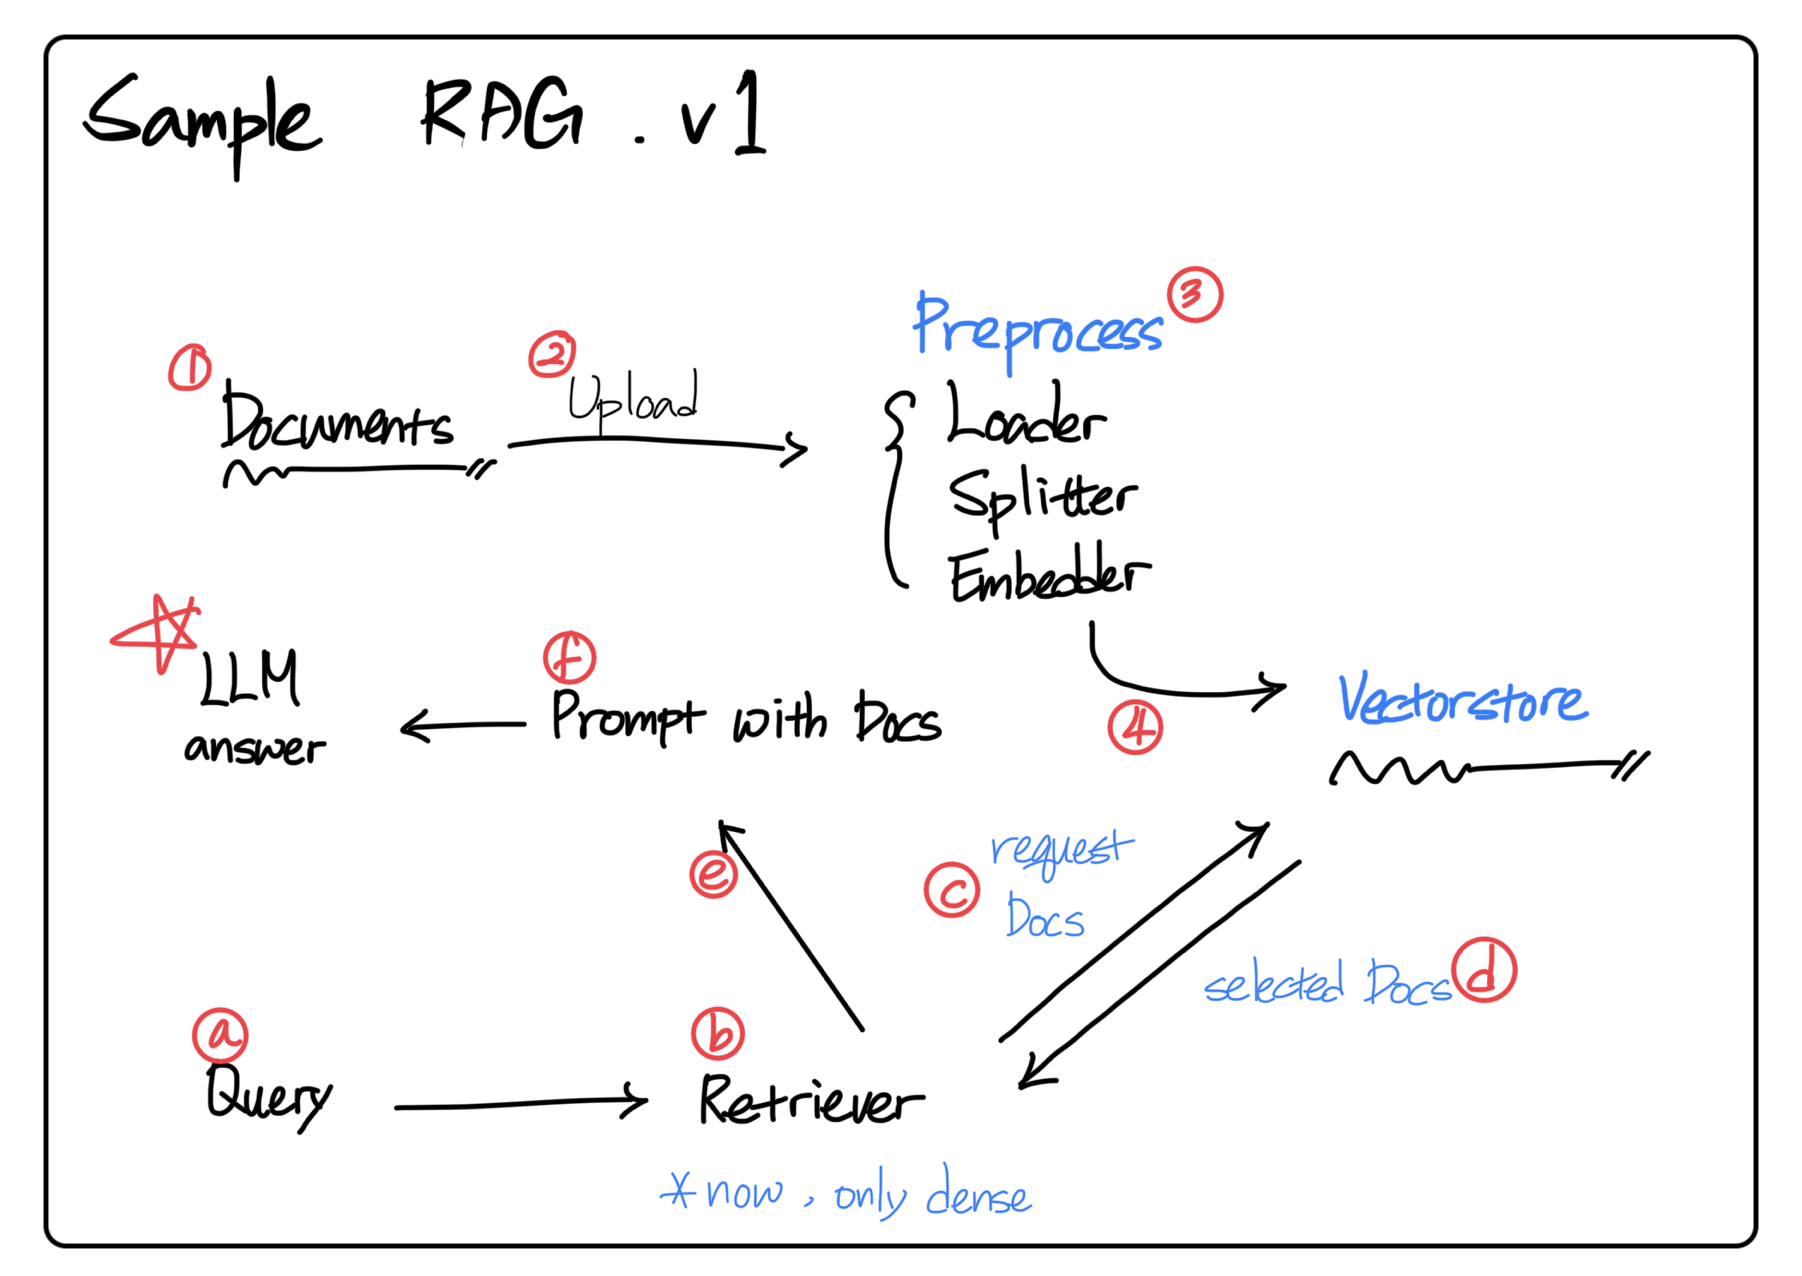 Sample RAG . v1
Preprocess ③
① Documents
② Upload
Loader
Splitter
Embedder
④
Vectorstore
LLM
answer
ⓕ Prompt with Docs
ⓔ
ⓒ request
Docs
selected Docs ⓓ
ⓐ Query
ⓑ Retriever
* now , only dense